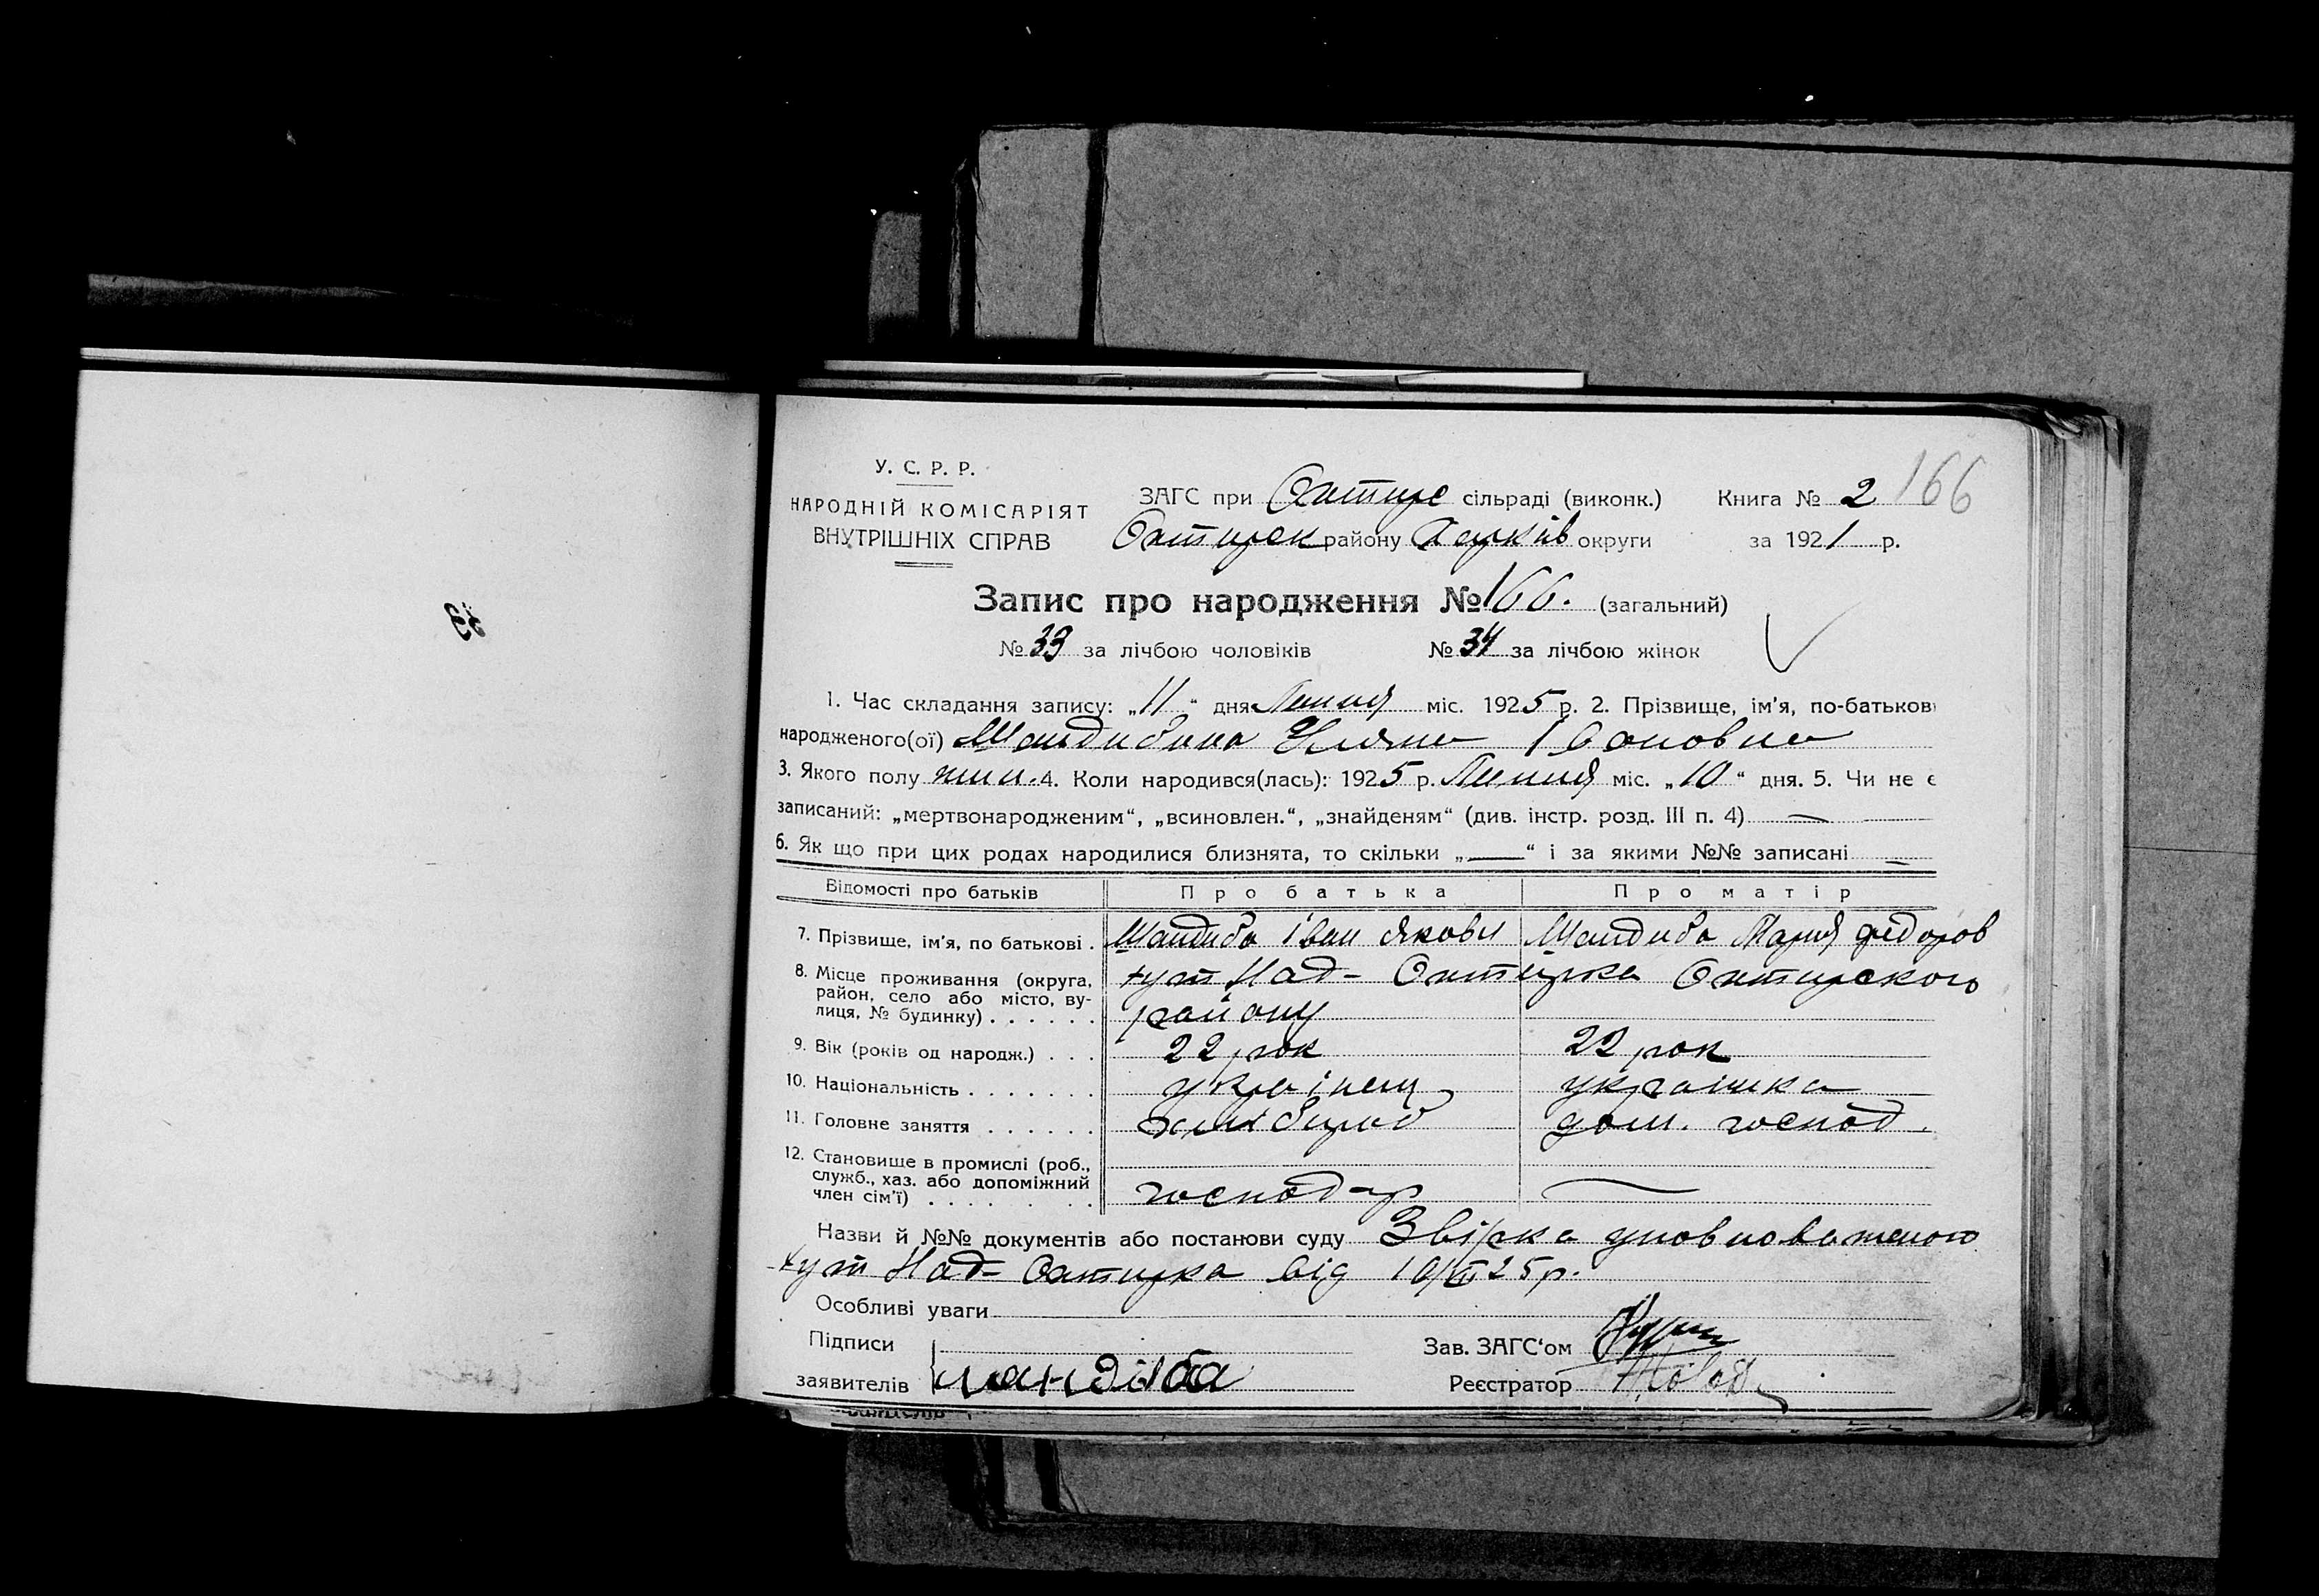 У. С. Р. Р.
НАРОДНІЙ КОМІСАРІЯТ
ВНУТРІШНІХ СПРАВ
ЗАГС при Охтирс сільраді (виконк.) Книга № 2 166
Охтирск району Харків округи за 1921 р.
Запис про народження № 166. (загальний)
№ 33 за лічбою чоловіків № 34 за лічбою жінок
1. Час складання запису: „11“ дня Липня міс. 1925 р. 2. Прізвище, ім'я, по-батькові
народженого(ої) Шандибина Уляна Івановна
3. Якого полу жин. 4. Коли народився(лась): 1925 р. Липня міс. „10“ дня. 5. Чи не є
записаний: „мертвонародженим“, „всиновлен.“, „знайденям“ (див. інстр. розд. III п. 4) —
6. Як що при цих родах народилися близнята, то скільки „—“ і за якими №№ записані —
Відомості про батьків Про батька Про матір
7. Прізвище, ім'я, по батькові . Шандиба Іван Якови Шандиба Мария Федоров
8. Місце проживання (округа, район, село або місто, вулиця, № будинку) . . . . . . хут Над- Охтирка Охтирского
району
9. Вік (років од народж.) . . . 22 рок 22 рок
10. Національність . . . . . . . українец українка
11. Головне заняття . . . . . . хлибороб дом. господ.
12. Становище в промислі (роб., служб., хаз. або допоміжний член сім'ї) . . . . . . . . господар —
Назви й №№ документів або постанови суду Звірка уповноваженого
хут Над- Охтирка від 10/VII 25 р.
Особливі уваги
Підписи
заявителів шандиба
Зав. ЗАГС'ом
Реєстратор